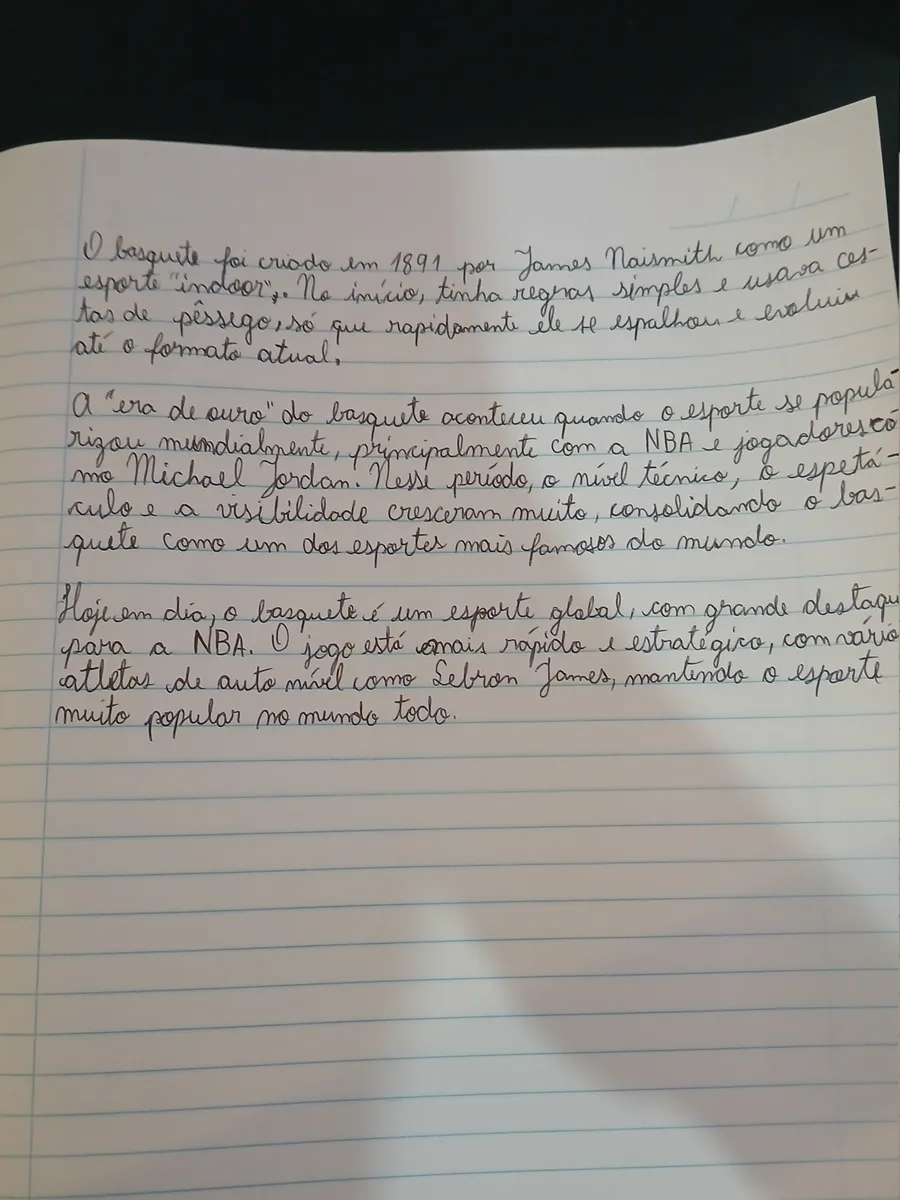 O basquete foi criado em 1891 por James Naismith como um
esporte "indoor",. No início, tinha regras simples e usava ces-
tas de pêssego, só que rapidamente ele se espalhou e evoluiu
até o formato atual.
A "era de ouro" do basquete aconteceu quando o esporte se popula-
rizou mundialmente, principalmente com a NBA e jogadores co-
mo Michael Jordan. Nesse período, o nível técnico, o espetá-
culo e a visibilidade cresceram muito, consolidando o bas-
quete como um dos esportes mais famosos do mundo.
Hoje em dia, o basquete é um esporte global, com grande destaqu
para a NBA. O jogo está mais rápido e estratégico, com vário
atletas de auto nível como Lebron James, mantendo o esporte
muito popular no mundo todo.